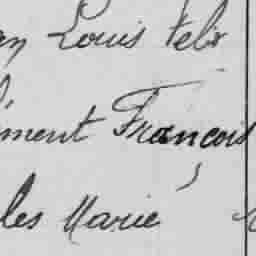 an Louis Felix
ément François
les Marie